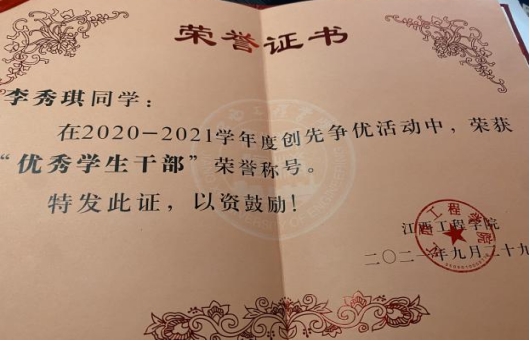 荣誉证书
李秀琪同学：
在2020-2021学年度创先争优活动中，荣获
“优秀学生干部”荣誉称号。
特发此证，以资鼓励！
江西工程学院
二〇二一年九月二十九